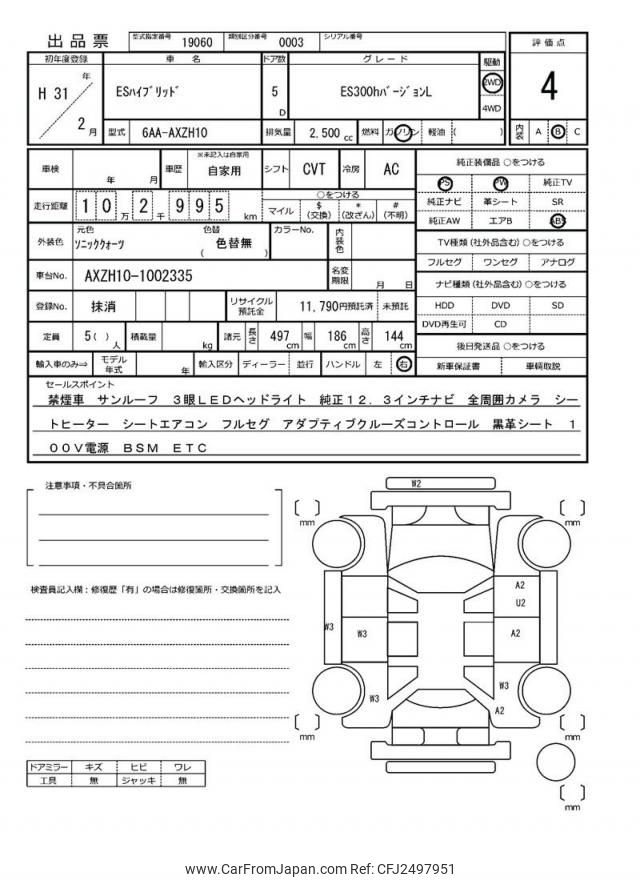 出品票
型式指定番号 19060 類別区分番号 0003 シリアル番号
初年度登録 車 名 ドア数 グレード 駆動 評価点
H 31 年 2 月 ESハイブリッド 5 D ES300hバージョンL 2WD 4WD 4
型式 6AA-AXZH10 排気量 2,500 cc 燃料 ガソリン 軽油 ( ) 内装 A B C
車検 年 月 車歴 ※未記入は自家用 自家用 シフト CVT 冷房 AC
走行距離 1 0 万 2 千 9 9 5 km ○をつける
マイル $ (交換) * (改ざん) # (不明)
外装色 元色 ソニッククォーツ 色替 色替無 ( ) カラーNo. 内装色
車台No. AXZH10-1002335 名変期限 月 日
登録No. 抹消 リサイクル預託金 11,790円預託済 未預託
定員 5 ( ) 人 積載量 kg 諸元 長さ 497 cm 幅 186 cm 高さ 144 cm
輸入車のみ⇒ モデル年式 年 輸入区分 ディーラー 並行 ハンドル 左 右
純正装備品 ○をつける
PS PW 純正TV
純正ナビ 革シート SR
純正AW エアB ABS
TV種類 (社外品含む) ○をつける
フルセグ ワンセグ アナログ
ナビ種類 (社外品含む) ○をつける
HDD DVD SD
DVD再生可 CD
後日発送品 ○をつける
新車保証書 車輌取説
セールスポイント
禁煙車 サンルーフ 3眼LEDヘッドライト 純正12.3インチナビ 全周囲カメラ シー
トヒーター シートエアコン フルセグ アダプティブクルーズコントロール 黒革シート 1
00V電源 BSM ETC
注意事項・不具合箇所
検査員記入欄:修復歴「有」の場合は修復箇所・交換箇所を記入
W2
[ ] mm [ ] mm
A2
U2
W3 W3 A2
W3 W3
A2
[ ] mm [ ] mm
[ ] mm
ドアミラー キズ ヒビ ワレ
工具 無 ジャッキ 無
www.CarFromJapan.com Ref: CFJ2497951